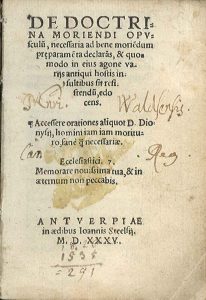 DE DOCTRI
NA MORIENDI OPV
sculũ, necessaria ad bene moriẽdum
præparamẽta declarãs, & quo-
modo in eius agone va-
rijs antiqui hostis in-
sultibus sit resi-
stendũ, edo
cens.
Waldsensis
¶ Accessere orationes aliquot D. Dio-
nysij, homini iam iam morituro,
sane q̃ necessariæ.
Ecclesiastici. 7.
Memorare nouissima tua, & in
æternum non peccabis.
ANTVERPIAE
in ædibus Ioannis Steelsij.
M. D. XXXV.
1535